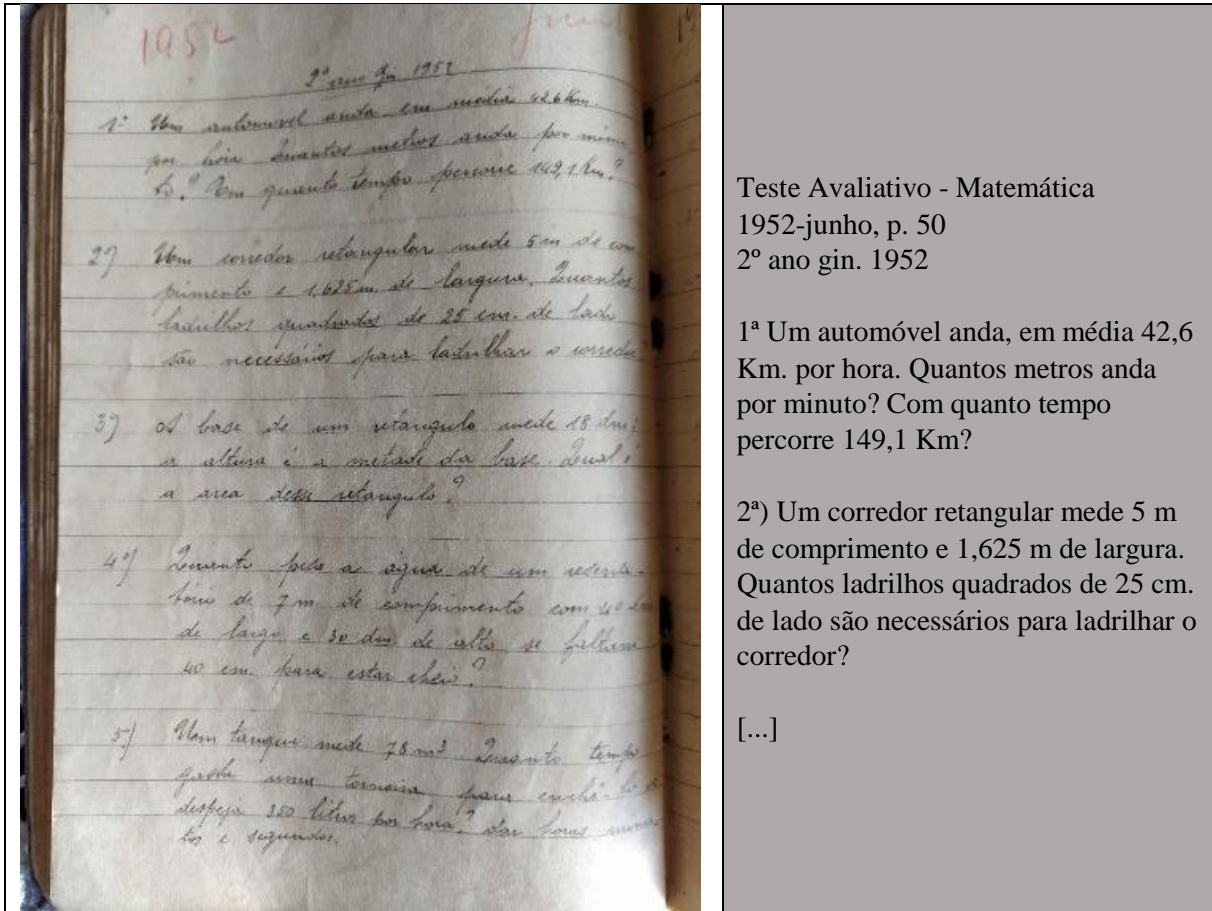 1952
2º ano Gin 1952
1º Um automovel anda em média 42,6 Km.
por hora Quantos metros anda por minu-
to? Em quanto tempo percorre 149,1 Km?
2º) Um corredor retangular mede 5 m de com
primento e 1,625 m de largura. Quantos
ladrilhos quadrados de 25 cm. de lado
são necessários para ladrilhar o corredor
3º) A base de um retangulo mede 18 dm;
a altura é a metade da base. Qual é
a area desse retangulo?
4º) Quanto pesa a água de um reserva-
tório de 7 m de comprimento com 40 dm
de largo e 30 dm de alto se faltam
40 cm. para estar cheio?
5º) Um tanque mede 78 m³ Quanto tempo
gasta uma torneira para enchê-lo
despeja 350 litros por hora? dar horas minu-
tos e segundos.
Teste Avaliativo - Matemática
1952-junho, p. 50
2º ano gin. 1952
1ª Um automóvel anda, em média 42,6
Km. por hora. Quantos metros anda
por minuto? Com quanto tempo
percorre 149,1 Km?
2ª) Um corredor retangular mede 5 m
de comprimento e 1,625 m de largura.
Quantos ladrilhos quadrados de 25 cm.
de lado são necessários para ladrilhar o
corredor?
[...]